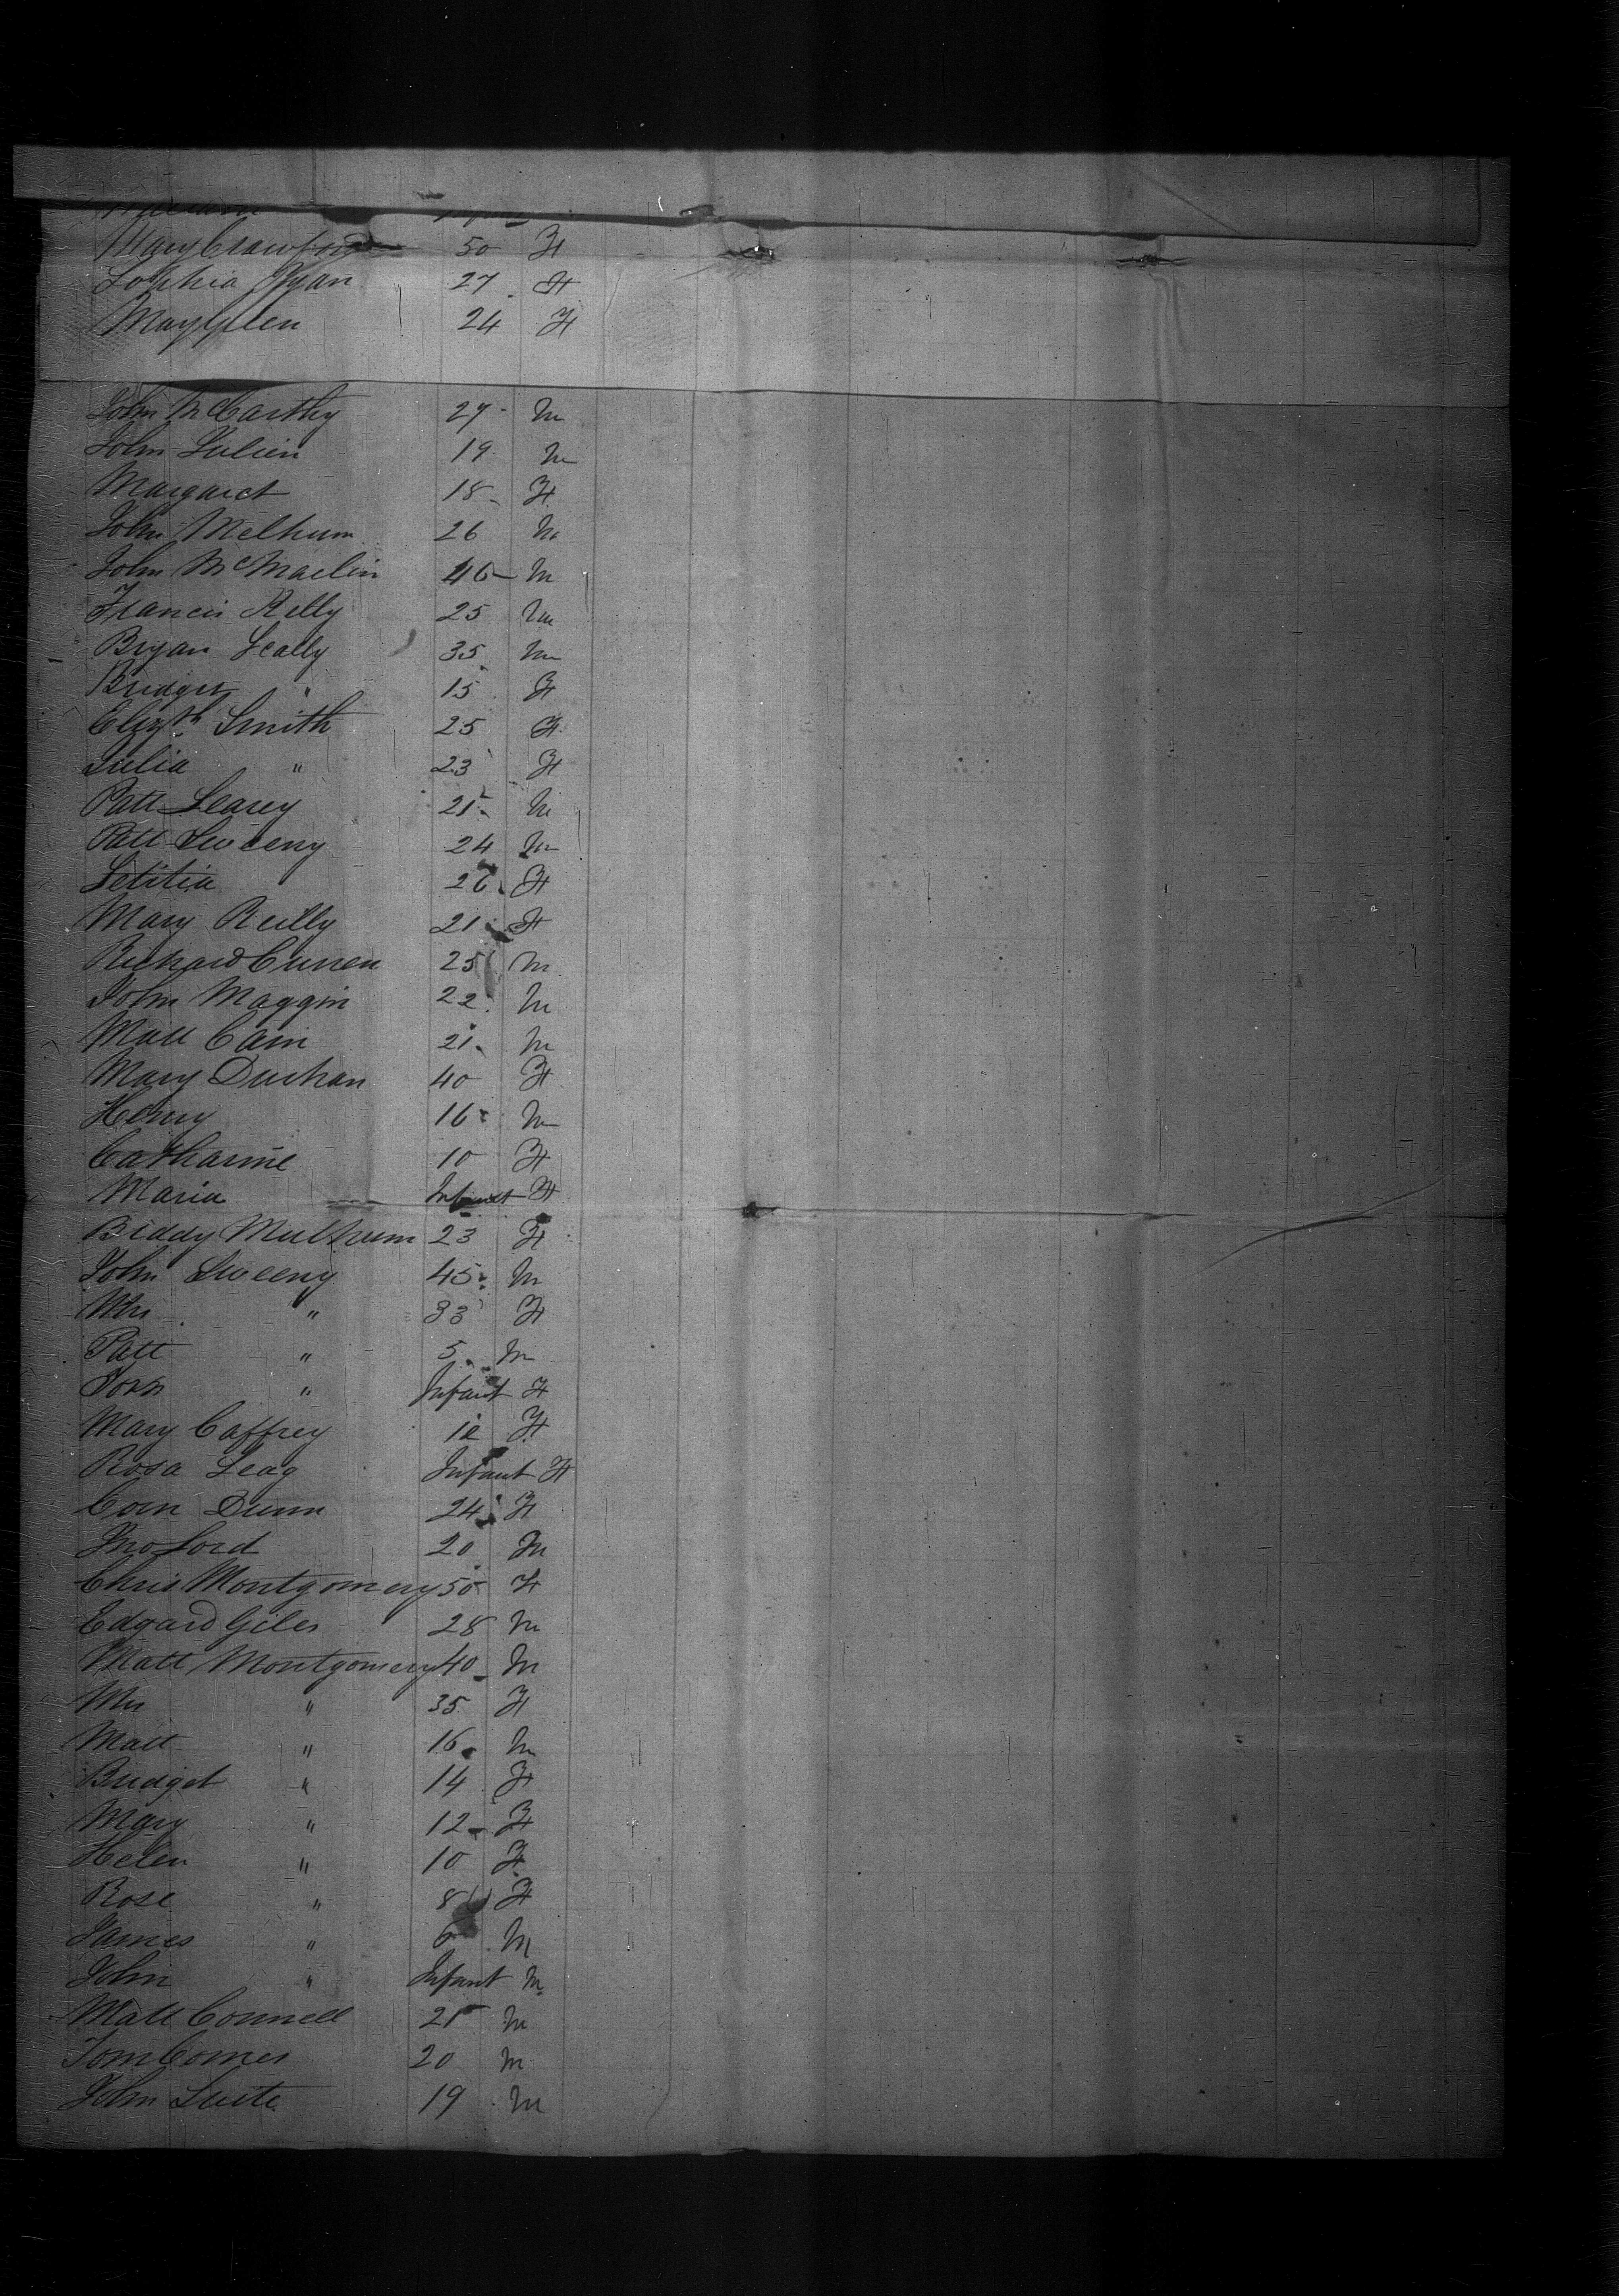 Mary Crawford 50 F
Sophia Ryan 27 F
Mary Glen 24 F
John McCarthy 27 M
John Julien 19 M
Margaret 18 F
John Melhum 26 M
John McMaelin 46 M
Francis Kelly 25 M
Bryan Scally 35 M
Bridget " 15 F
Elizth Smith 25 F
Julia " 23 F
Patt Learey 21 M
Patt Sweeny 24 M
Letitia 26 F
Mary Reilly 21 F
Richard Curren 25 M
John Maggin 22 M
Matt Cain 21 M
Mary Durhan 40 F
Henry 16 M
Catharine 10 F
Maria Infant F
Biddy Mulhum 23 F
John Sweeny 45 M
Mrs " 33 F
Patt " 5 M
" Infant F
Mary Caffrey 12 F
Rosa Leag Infant F
Corn Dunn 24 F
Jno Lord 20 M
Chris Montgomery 50 F
Edgard Giles 28 M
Matt Montgomery 40 M
Mrs " 35 F
Matt " 16 M
Bridget " 14 F
Mary " 12 F
Helen " 10 F
Rose " 8 F
James " 6 M
John " Infant M
Matt Connell 21 M
Tom Comes 20 M
John 19 M